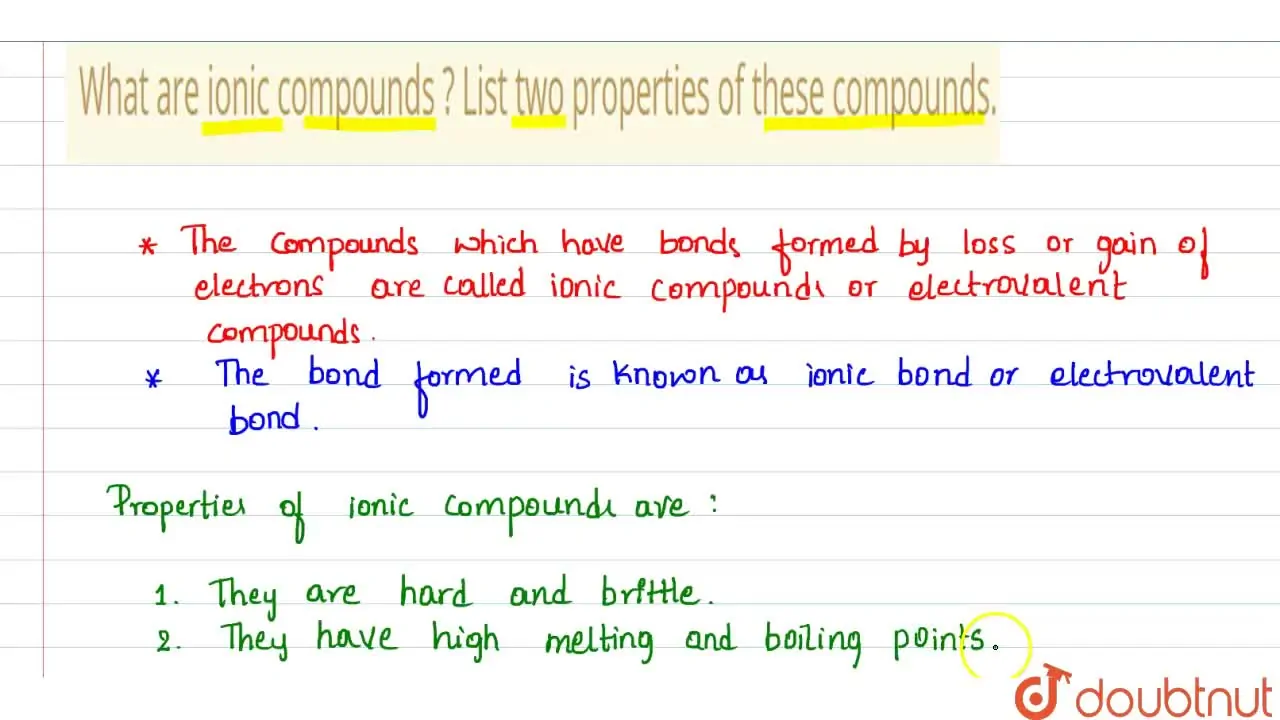 What are ionic compounds ? List two properties of these compounds.
* The compounds which have bonds formed by loss or gain of
electrons are called ionic compounds or electrovalent
compounds.
* The bond formed is known as ionic bond or electrovalent
bond.
Properties of ionic compounds are :
1. They are hard and brittle.
2. They have high melting and boiling points.
doubtnut